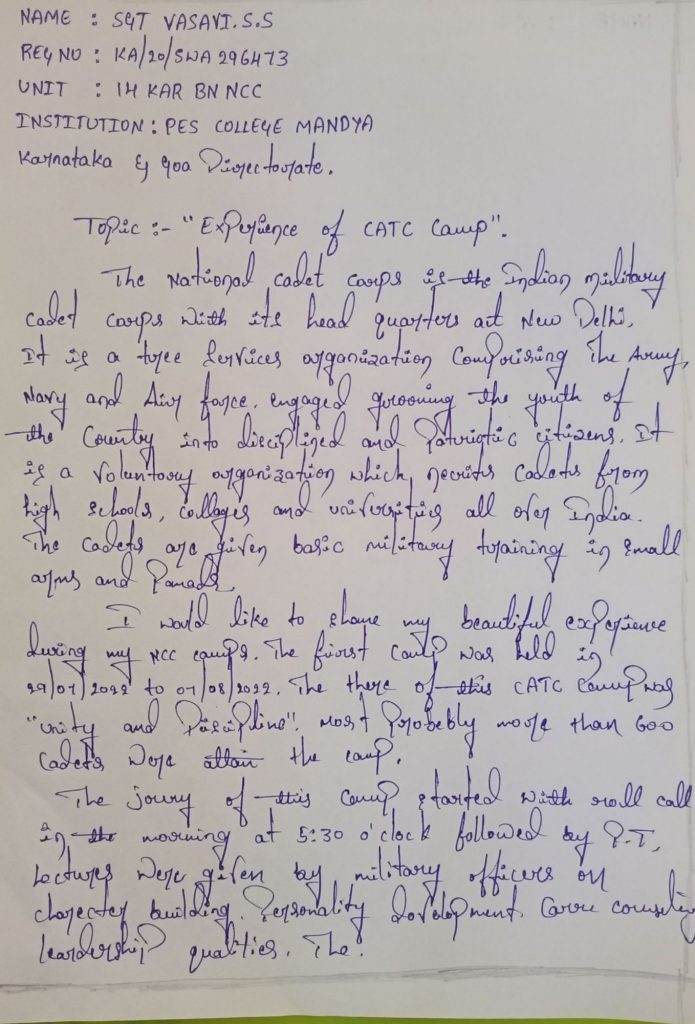 NAME : SGT VASAVI.S.S
REG NO : KA/20/SWA 296473
UNIT : 14 KAR BN NCC
INSTITUTION : PES COLLEGE MANDYA
Karnataka & Goa Directorate.
Topic :- "Experience of CATC Camp".
The National cadet corps is the Indian military
cadet corps with its head quarters at New Delhi.
It is a tree Services organization Comprising The Army,
Navy and Air force. engaged grooming the youth of
the Country into disciplined and Patriotic citizens. It
is a Voluntory organization which recrits Cadets from
high schools, Colleges and universities all over India.
The Cadets are given basic military training in small
arms and Parads.
I would like to share my beautiful experience
during my NCC camps. The first Camp was held in
to 07/08/2022. The there of this CATC Camp was
"Unity and Discipline". Most Probebly more than 600
Cadets were attain the camp.
The joury of this Camp started with roll call
in the morning at 5:30 o'clock followed by P.T,
Lectures were given by military officers on
charecter building. Personality development Carre
leardership qualities. The.